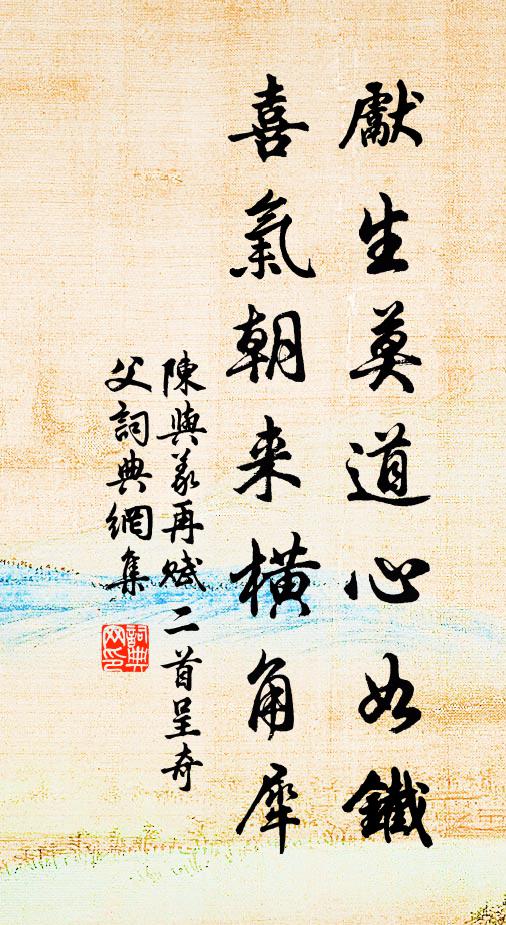 獻生莫道心如鐵
喜氣朝来橫角犀
陳與義再賦二首呈奇
父詞典網集
詞典
网印